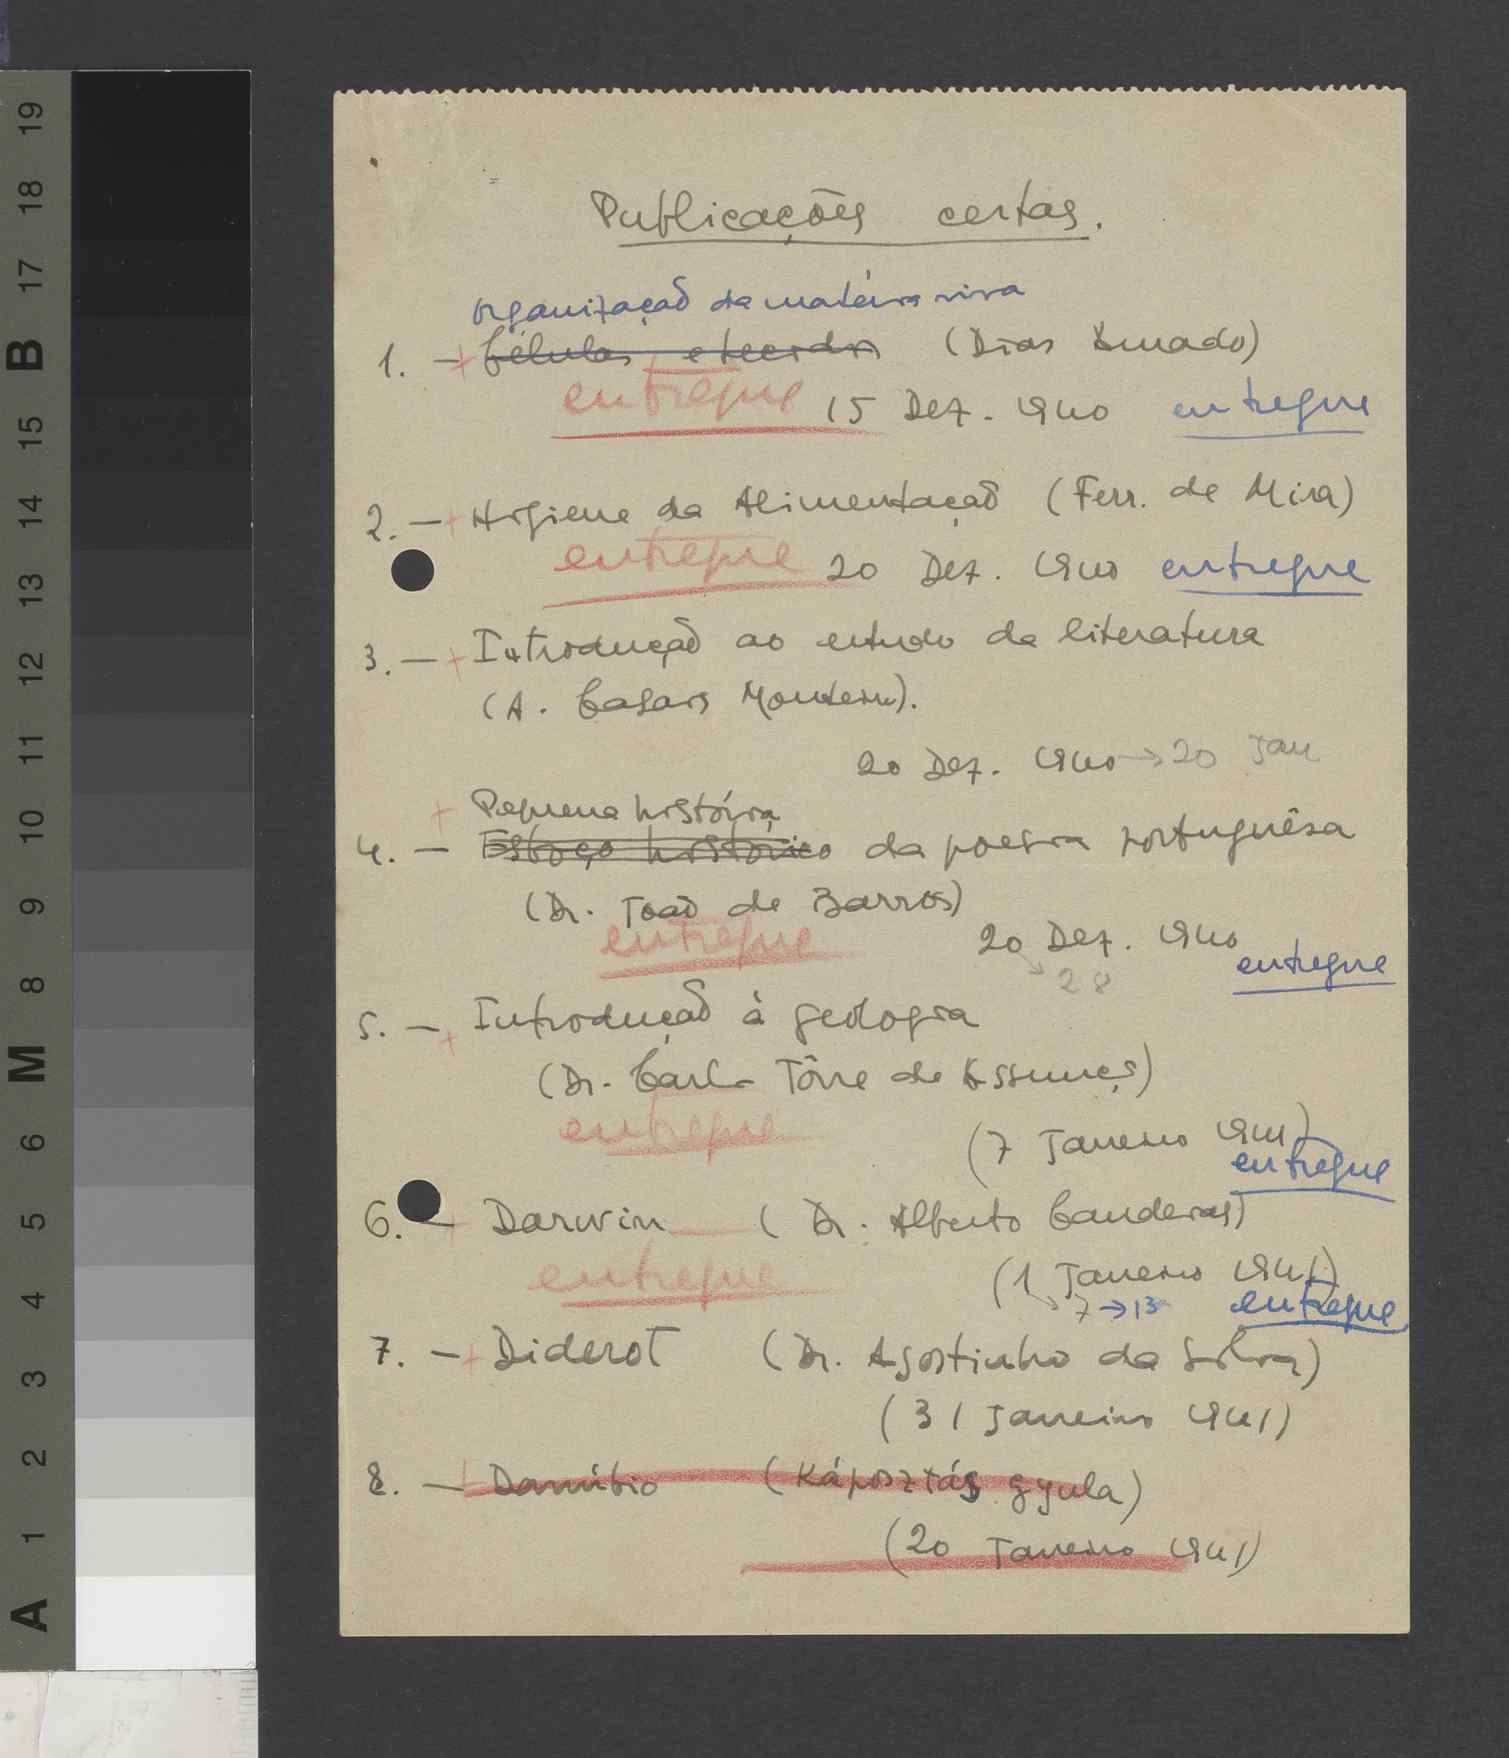 Publicações certas.
Organização da matéria viva
1. — + Células e tecidos (Dias Amado)
entregue 15 Dez. 1940 entregue
2. — + Higiene da Alimentação (Ferr. de Mira)
entregue 20 Dez. 1940 entregue
3. — + Introdução ao estudo da literatura
(A. Casais Monteiro).
20 Dez. 1940 → 20 Jan
+ Pequena história
4. — Esboço histórico da poesia portuguêsa
(Dr. João de Barros)
entregue 20 Dez. 1940
→ 28 entregue
5. — + Introdução à geologia
(Dr. Carlos Tôrre de Assunção)
entregue
(7 Janeiro 1941)
entregue
6. — + Darwin (Dr. Alberto Candeias)
entregue (1 Janeiro 1941)
→ 7 → 13 entregue
7. — + Diderot (Dr. Agostinho da Silva)
(31 Janeiro 1941)
8. — + Danúbio (Káposztás Gyula)
(20 Janeiro 1941)
19
18
17
B
15
14
13
12
11
10
9
8
M
6
5
4
3
2
1
A